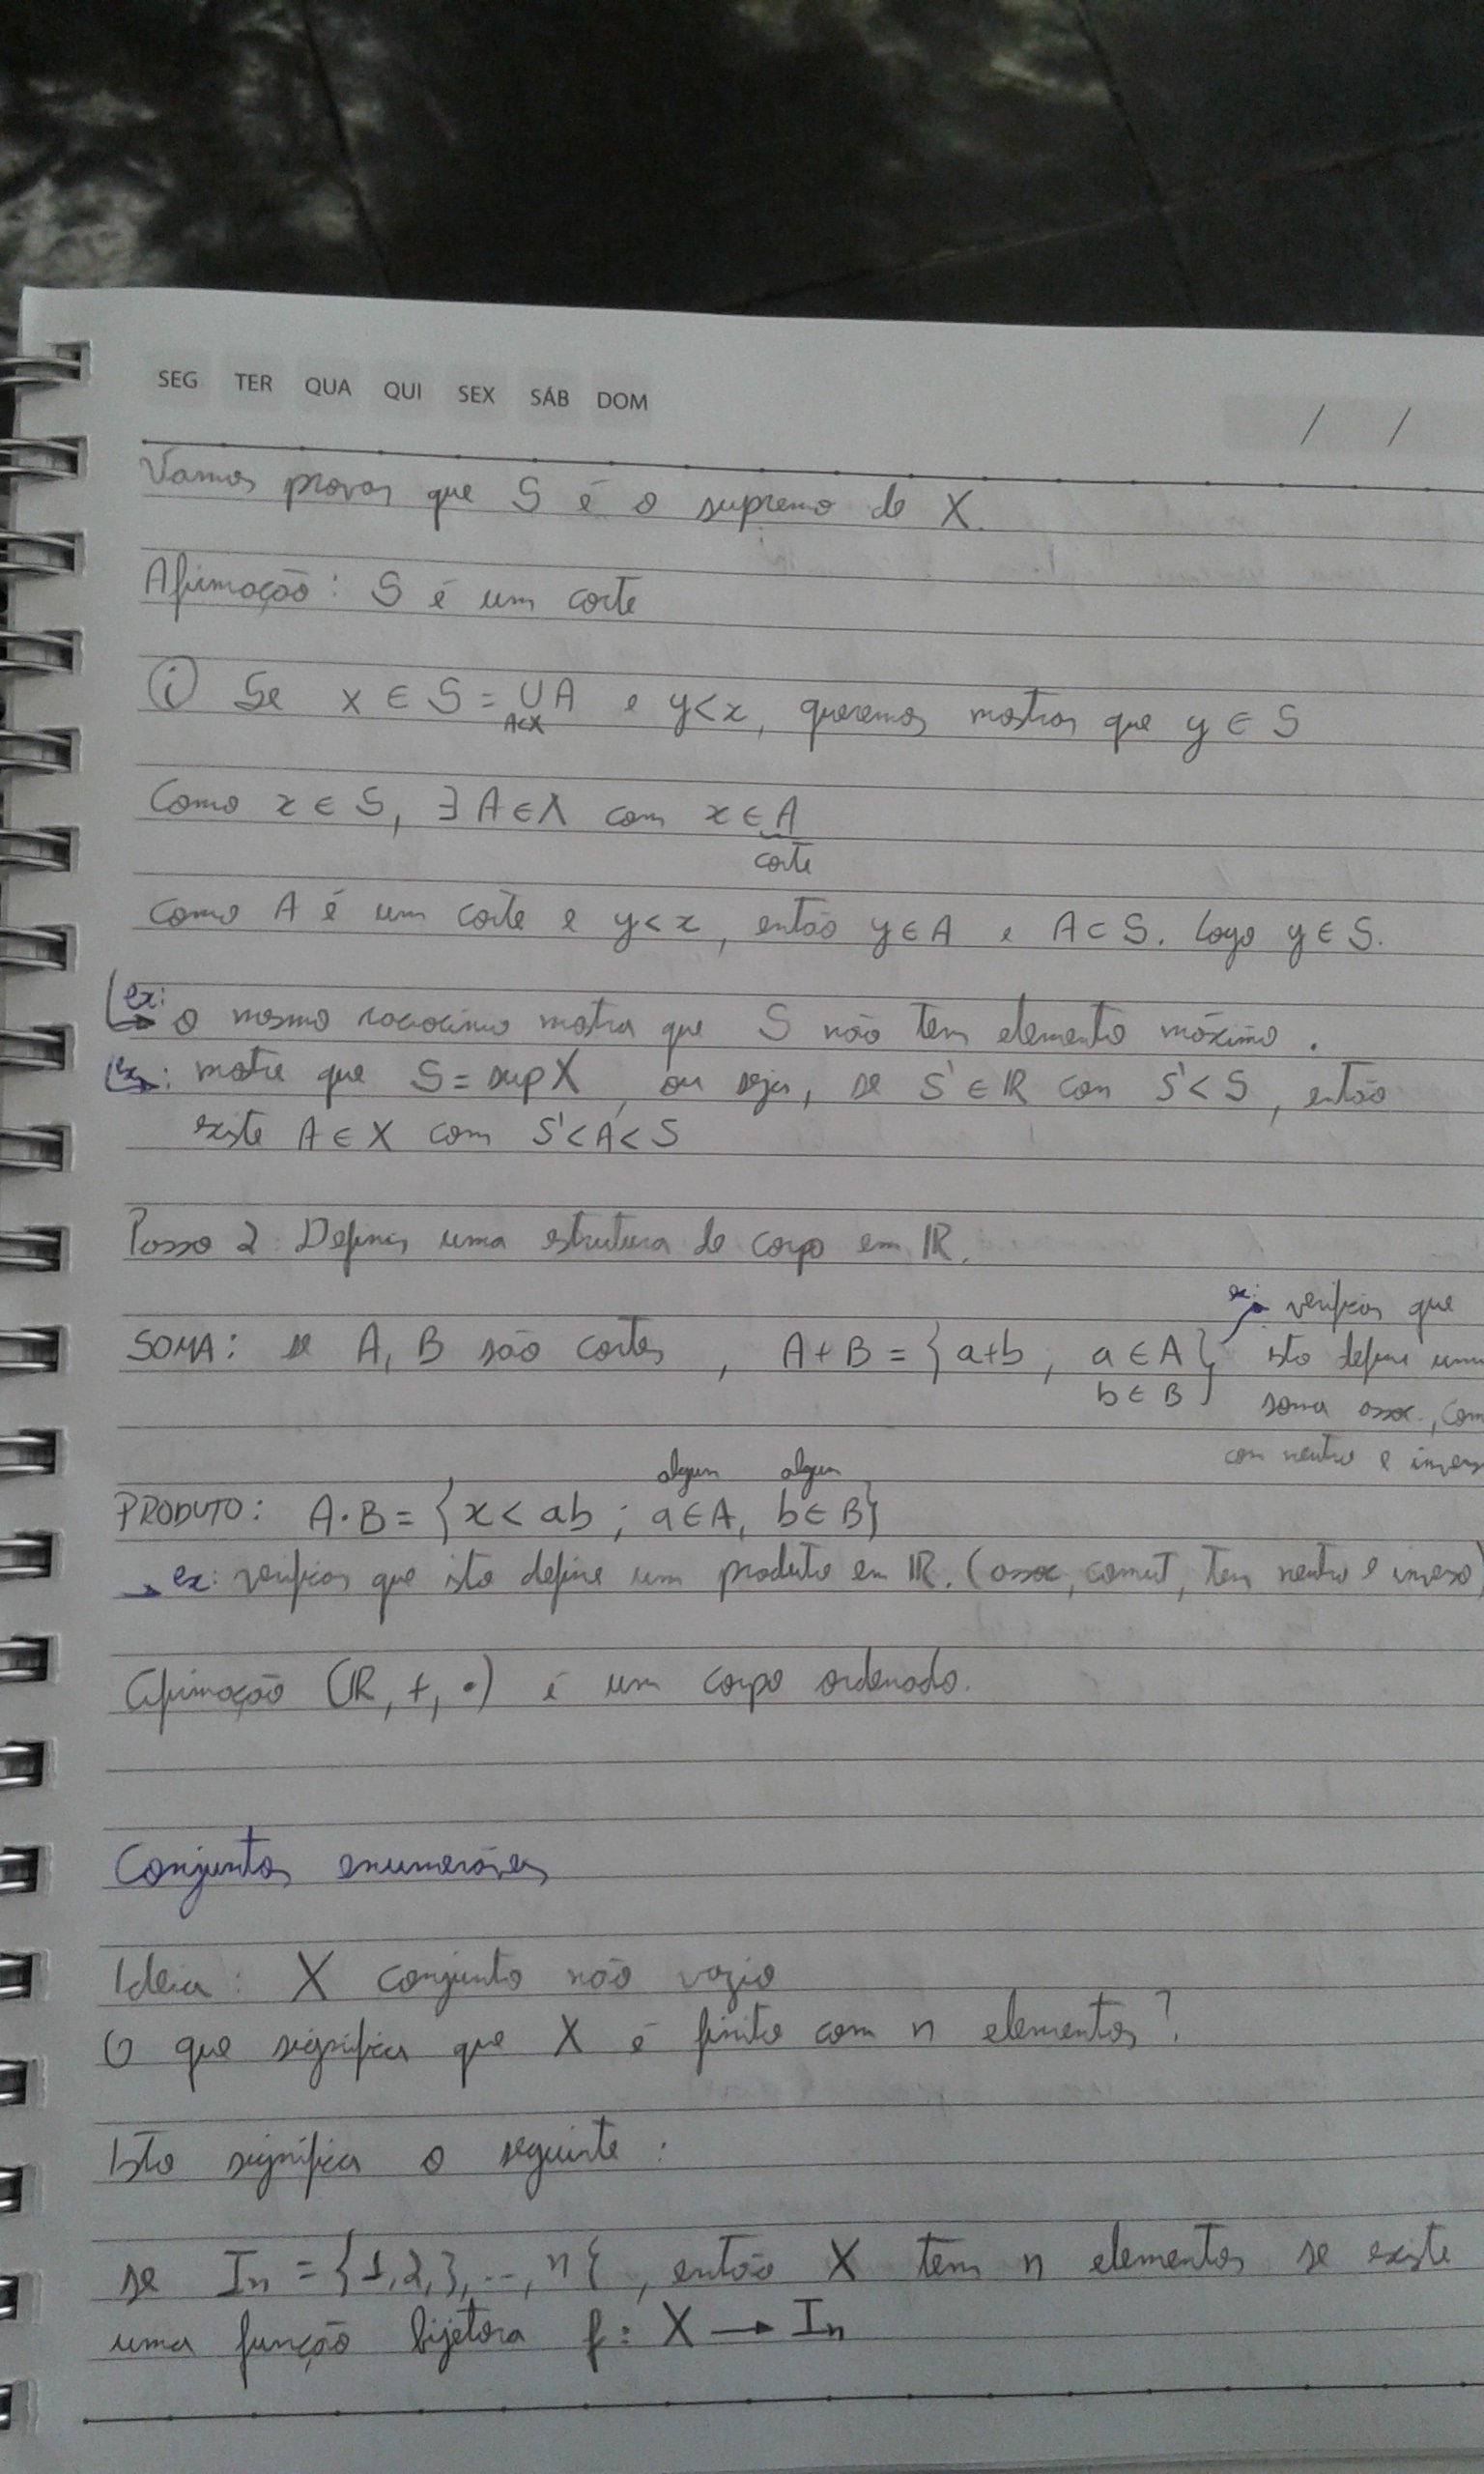 SEG TER QUA QUI SEX SÁB DOM
/ /
Vamos provar que S é o supremo de X.
Afirmação: S é um corte
(i) Se x ∈ S = ∪A e y<x, queremos mostrar que y ∈ S
A∈X
Como x ∈ S, ∃ A ∈ X com x ∈ A
corte
como A é um corte e y<x, então y ∈ A e A ⊂ S. Logo y ∈ S.
ex:
→ o mesmo raciocínio mostra que S não tem elemento máximo.
ex: mostre que S = sup X, ou seja, se S' ∈ ℝ com S' < S, então
existe A ∈ X com S' < A < S
Passo 2: Definir uma estrutura de corpo em ℝ.
ex: verificar que
SOMA: se A, B são cortes, A+B = {a+b, a ∈ A} isto define uma
b ∈ B soma assoc., com
com neutro e invers
algum algum
PRODUTO: A·B = {x < ab ; a ∈ A, b ∈ B}
→ ex: verificar que isto define um produto em ℝ. (assoc, comut, tem neutro e inverso)
Afirmação (ℝ, +, ·) é um corpo ordenado.
Conjuntos enumeráveis
Ideia: X conjunto não vazio
O que significa que X é finito com n elementos?
Isto significa o seguinte:
se In = {1,2,3,...,n}, então X tem n elementos se existe
uma função bijetora f: X → In